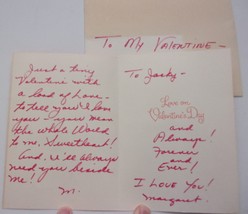 To My Valentine -
Just a tiny
Valentine with
a load of Love -
to tell you I love
you - you mean
the whole World
to me, Sweetheart!
And, I'll always
need you beside
me!
M.
To Jacky -
Love on
Valentine's Day
and
Always!
Forever
and
Ever!
I Love You!
Margaret.